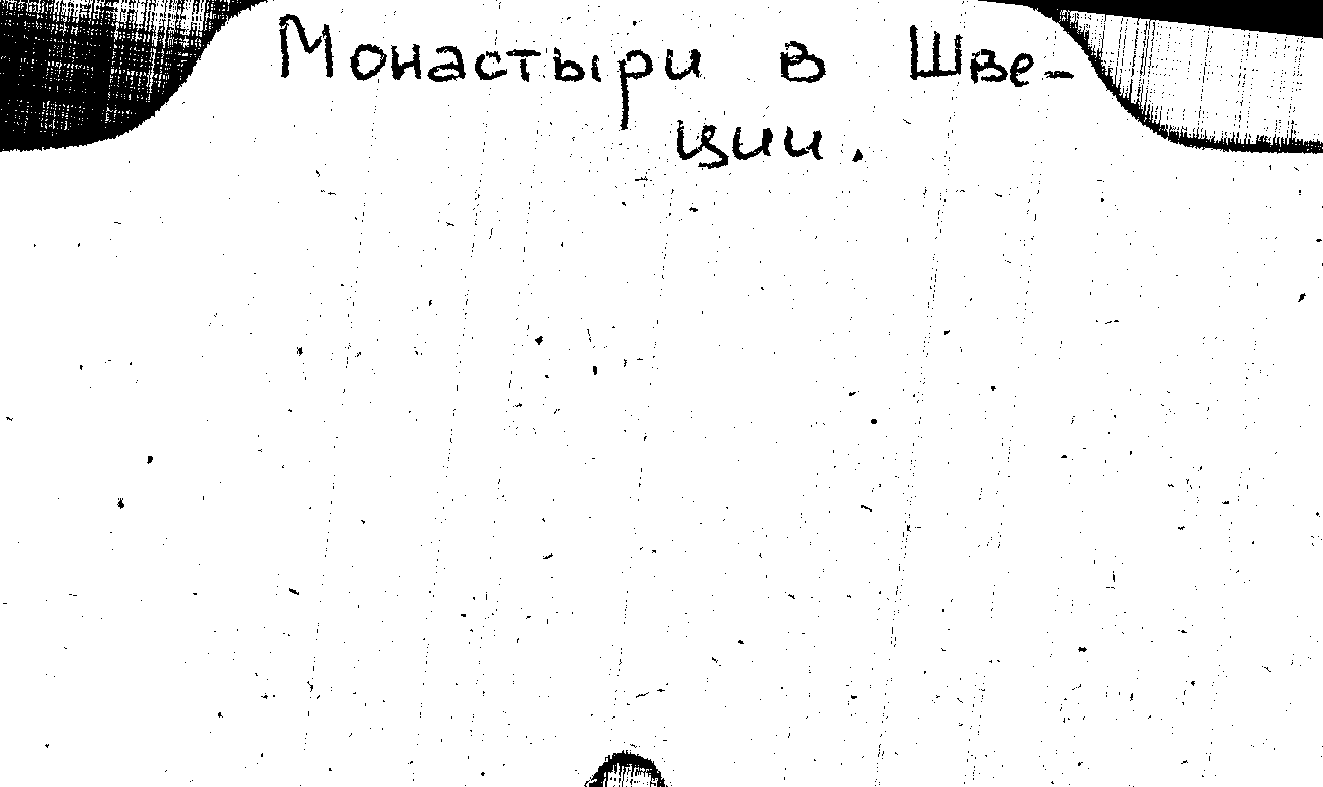 Монастыри в Шве-
ции.